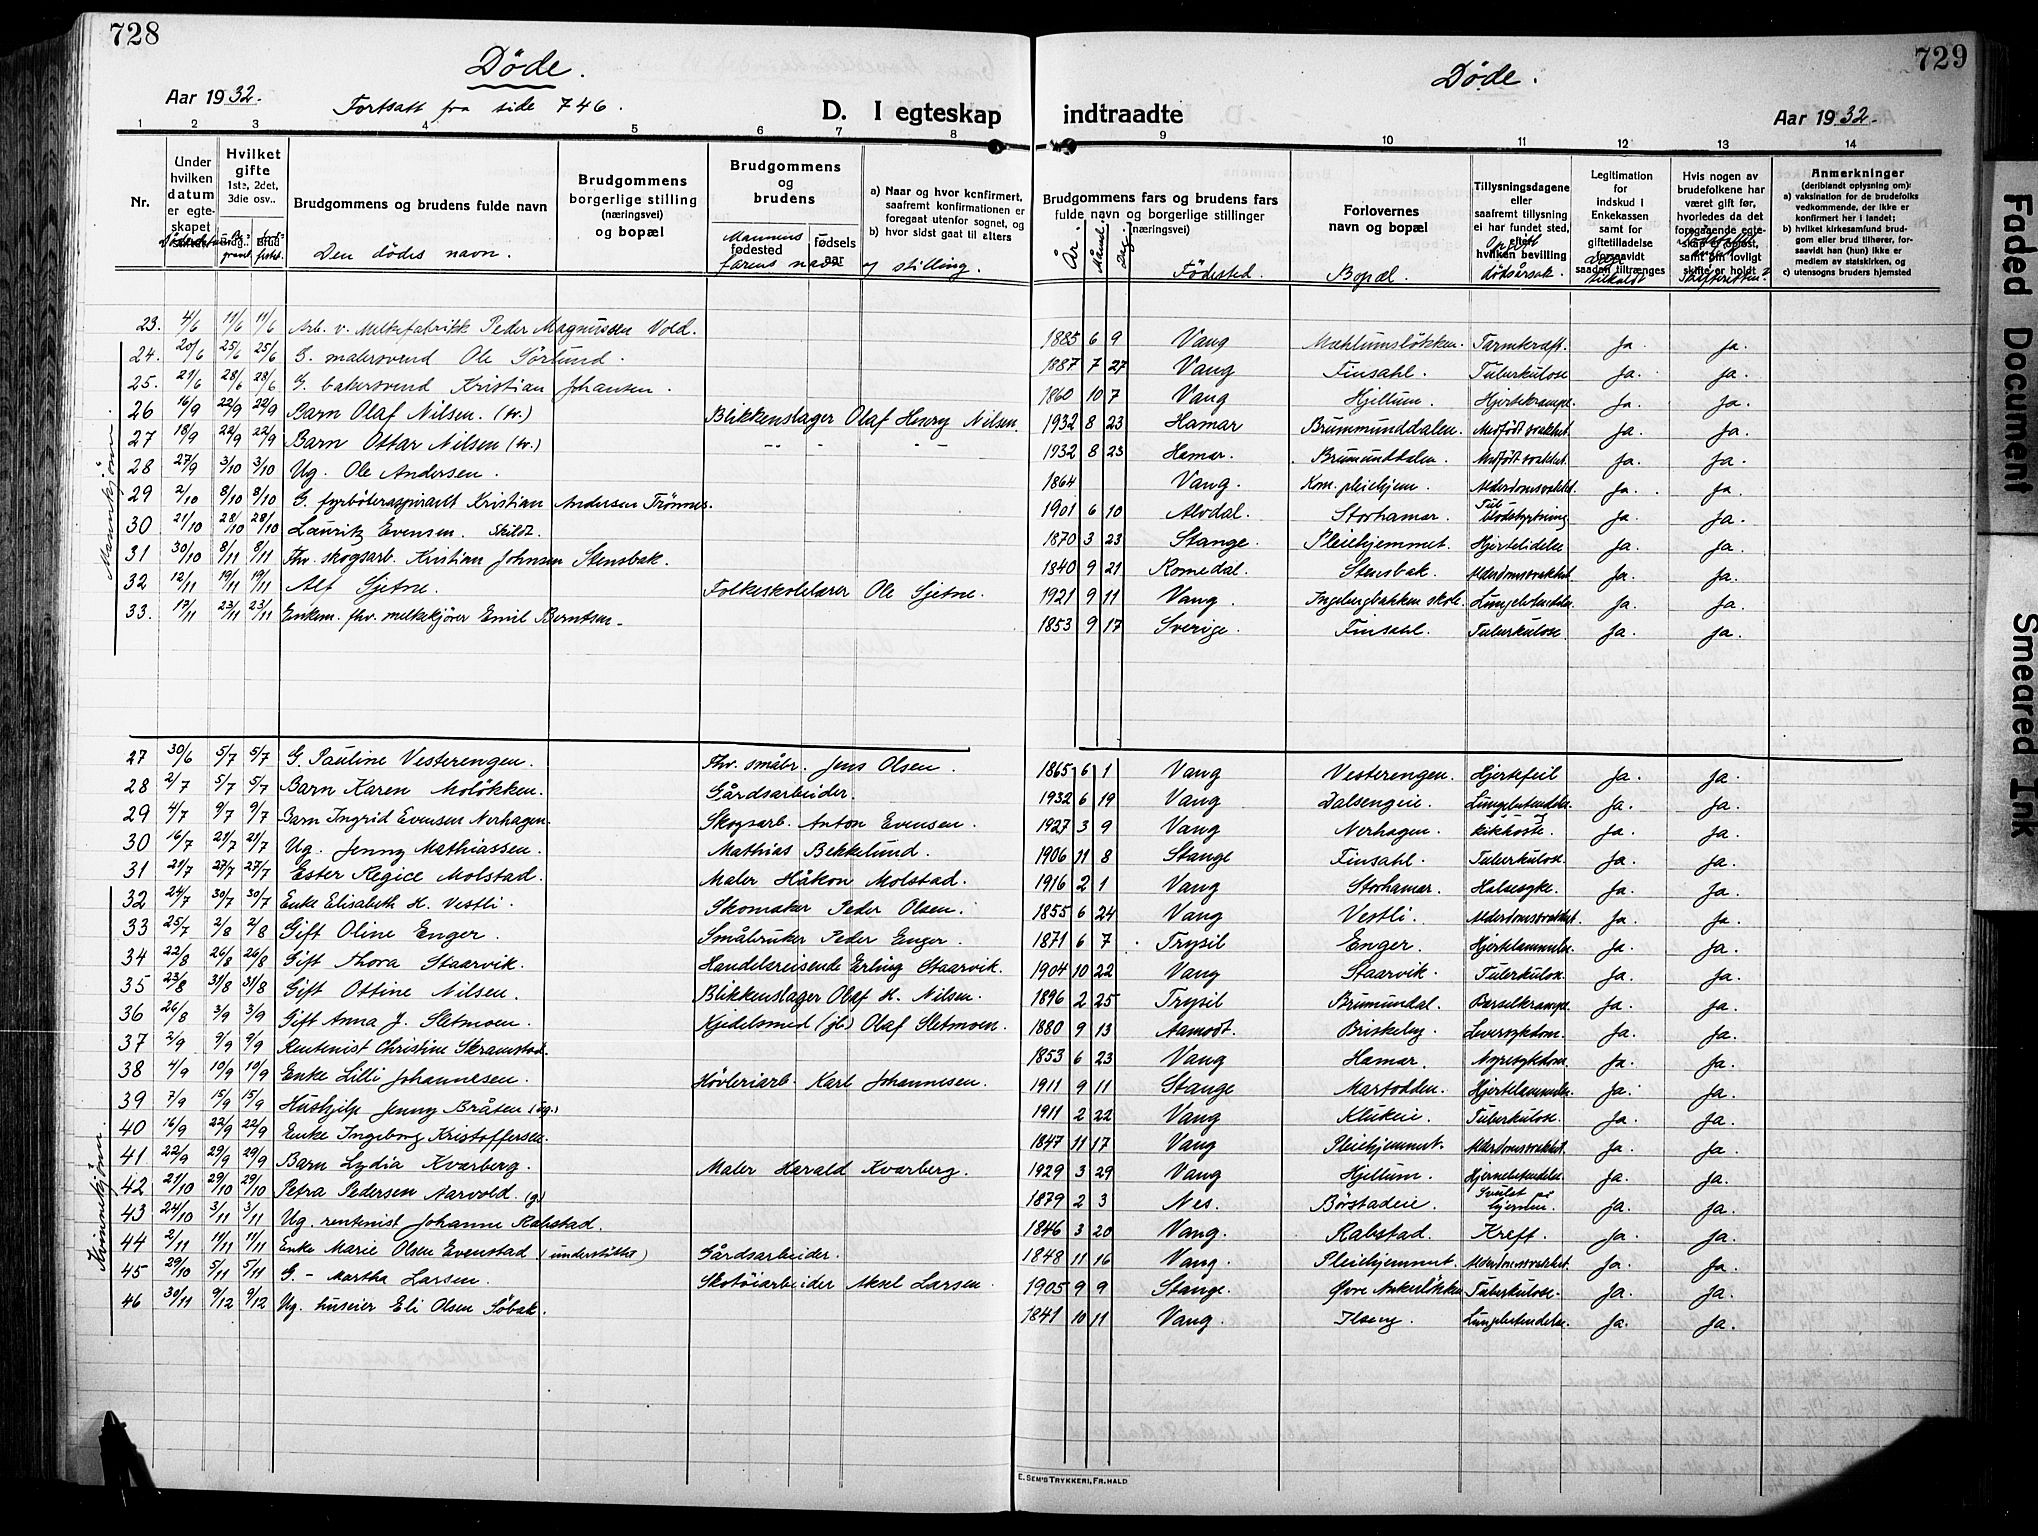 728
Døde.
Aar 1932.
Fortsatt fra side 746.
D. I egteskap
1 2 3 4 5 6 7 8
Nr.
Under hvilken datum er egteskapet
Hvilket gifte
1ste, 2det, 3die osv..
Brudgommens og brudens fulde navn
Den dødes navn.
Brudgommens borgerlige stilling (næringsvei) og bopæl
Brudgommens og brudens
fødested
fødsels aar
Mannens farens navn og stilling.
a) Naar og hvor konfirmert, saafremt konfirmationen er foregaat utenfor sognet, og
b) hvor sidst gaat til alters
Mannkjønn.
23. 4/6 11/6 11/6 Arb. v. Melkefabrikk Peder Magnussen Vold.
24. 20/6 25/6 25/6 G. malersvend Ole Sörlund.
25. 21/6 28/6 28/6 G. bakersvend Kristian Johansen.
26 16/9 22/9 22/9 Barn Olaf Nilsen. (tv.) Blikkenslager Olaf Henry Nilsen.
27 18/9 22/9 22/9 Barn Ottar Nilsen (tv.) -"- - -"-
28 27/9 3/10 3/10 Ug. Ole Andersen.
29 2/10 8/10 8/10 G. fyrbøteraspirant Kristian Andersen Trønnes.
30 21/10 28/10 28/10 Lauritz Evensen. Skildt.
31 30/10 8/11 8/11 Fhv. skogsarb. Kristian Johnsen Stensbak.
32 12/11 19/11 19/11 Alf Sjetne. Folkeskolelærer Ole Sjetne.
33. 17/11 23/11 23/11 Enkem. fhv. melkekjører Emil Berntsen.
Kvinnekjønn.
27 30/6 5/7 5/7 G. Pauline Vesterengen. Fhv. småbr. Jens Olsen.
28 2/7 5/7 5/7 Barn Karen Moløkken. Gårdsarbeider.
29 4/7 9/7 9/7 Barn Ingrid Evensen Nerhagen. Skogsarb. Anton Evensen.
30 16/7 21/7 21/7 Ug. Jenny Mathiassen. Mathias Bekkelund.
31 21/7 27/7 27/7 Ester Regice Molstad. Maler Håkon Molstad.
32 24/7 30/7 30/7 Enke Elisabeth H. Vestli. Skomaker Peder Olsen.
33 25/7 2/8 2/8 Gift Oline Enger. Småbruker Peder Enger.
34 22/8 26/8 26/8 Gift Thora Staarvik. Handelsreisende Erling Staarvik.
35 23/8 31/8 31/8 Gift Ottine Nilsen. Blikkenslager Olaf H. Nilsen.
36 26/8 3/9 3/9 Gift Anna J. Sletmoen. Kjedelsmed (jb.) Olaf Sletmoen.
37 2/9 9/9 9/9 Rentenist Christine Skramstad.
38 4/9 10/9 10/9 Enke Lilli Johannesen. Høvleriarb. Karl Johannesen.
39 7/9 15/9 15/9 Hushjelp Jenny Bråten (ug.)
40 16/9 22/9 22/9 Enke Ingeborg Kristoffersen.
41 22/9 29/9 29/9 Barn Lydia Kvarberg. Maler Harald Kvarberg.
42 21/10 29/10 29/10 Petra Pedersen Aarvold. (g.)
43 24/10 3/11 3/11 Ug. rentenist Johanne Rabstad.
44 2/11 11/11 11/11 Enke Marie Olsen Evenstad (understøttet) Gårdsarbeider.
45 29/10 5/11 5/11 G. - Martha Larsen. Skotøiarbeider Aksel Larsen.
46 30/11 9/12 9/12 Ug. huseier Eli Olsen Søbak.
729
Døde.
indtraadte
Aar 1932.
9 10 11 12 13 14
Brudgommens fars og brudens fars fulde navn og borgerlige stillinger (næringsvei)
År. Måned Dag
Fødested.
Forlovernes navn og bopæl
Bopæl.
Tillysningsdagene eller saafremt tillysning ei har fundet sted, efter hvilken bevilling
Opgitt dødsårsak.
Legitimation for indskud i Enkekassen samt for giftetilladelse forsaavidt saadan tiltrænges
Hvis nogen av brudefolkene har været gift før, hvorledes da det foregaaende egteskap er opløst, samt om lovligt skifte er holdt
Skifteretten?
Anmerkninger
(deriblandt oplysning om):
a) vaksination for de brudefolks vedkommende, der ikke er konfirmert her i landet;
b) hvilket kirkesamfund brudgom eller brud tilhører, forsaavidt han (hun) ikke er medlem av statskirken, og
c) utensogns bruders hjemsted
1885 6 9 Vang Mæhlumsløkken. Tarmkræft. Ja. Ja.
1887 7 27 Vang Finsahl. Tuberkulose Ja. Ja.
1860 10 7 Vang Hjellum. Hjertekrampe. Ja. Ja.
1932 8 23 Hamar Brummunddalen. Medfødt svakhet. Ja. Ja.
1932 8 23 Hamar. Brumunddalen. Medfødt svakhet. Ja. Ja.
1864 Vang. Kom. pleiehjem. Alderdomssvakhet. Ja. Ja.
1901 6 10 Alvdal. Storhamar. Tub. blodstyrtning Ja. Ja.
1870 3 23 Stange. Pleiehjemmet. Hjertelidelse Ja. Ja.
1840 9 21 Romedal. Stensbak. Alderdomssvakhet. Ja. Ja.
1921 9 11 Vang. Ingebergbakken skole. Lungebetendelse. Ja. Ja.
1853 9 17 Sverige. Finsahl. Tuberkulose Ja. Ja.
1865 6 1 Vang Vesterengen. Hjertefeil Ja. Ja.
1932 6 19 Vang Dalsengeie. Lungebetendelse. Ja. Ja.
1927 3 9 Vang Nerhagen. kikhoste. Ja. Ja.
1906 11 8 Stange Finsahl. Tuberkulose. Ja. Ja.
1916 2 1 Vang Storhamar. Halsesyke. Ja. Ja.
1855 6 24 Vang Vestli. Alderdomssvakhet. Ja. Ja.
1871 6 7 Trysil Enger. Hjertelammelse. Ja. Ja.
1904 10 22 Vang Staarvik. Tuberkulose Ja. Ja.
1896 2 25 Trysil Brumundal. Barselkrampe. Ja. Ja.
1880 9 13 Aamodt. Briskeby. Leversykdom. Ja. Ja.
1853 6 23 Vang Hamar. Nyresykdom Ja. Ja.
1911 9 11 Stange Martodden. Hjertelammelse. Ja. Ja.
1911 2 22 Vang Klukeie. Tuberkulose. Ja. Ja.
1847 11 17 Vang Pleiehjemmet. Alderdomssvakhet. Ja. Ja.
1929 3 29 Vang Hjellum. Hjernebetendelse. Ja. Ja.
1879 2 3 Nes. Børstadeie. Svulst på hjernen. Ja. Ja.
1846 3 20 Vang. Rabstad. Kreft. Ja. Ja.
1848 11 16 Vang. Pleiehjemmet. Alderdomssvakhet. Ja. Ja.
1905 9 9 Stange. Øvre Ankerløkken Tuberkulose. Ja. Ja.
1841 10 11 Vang. Ilseng. Lungebetendelse. Ja. Ja.
E. SEM'S TRYKKERI, FR.HALD
Faded Document
Smeared Ink